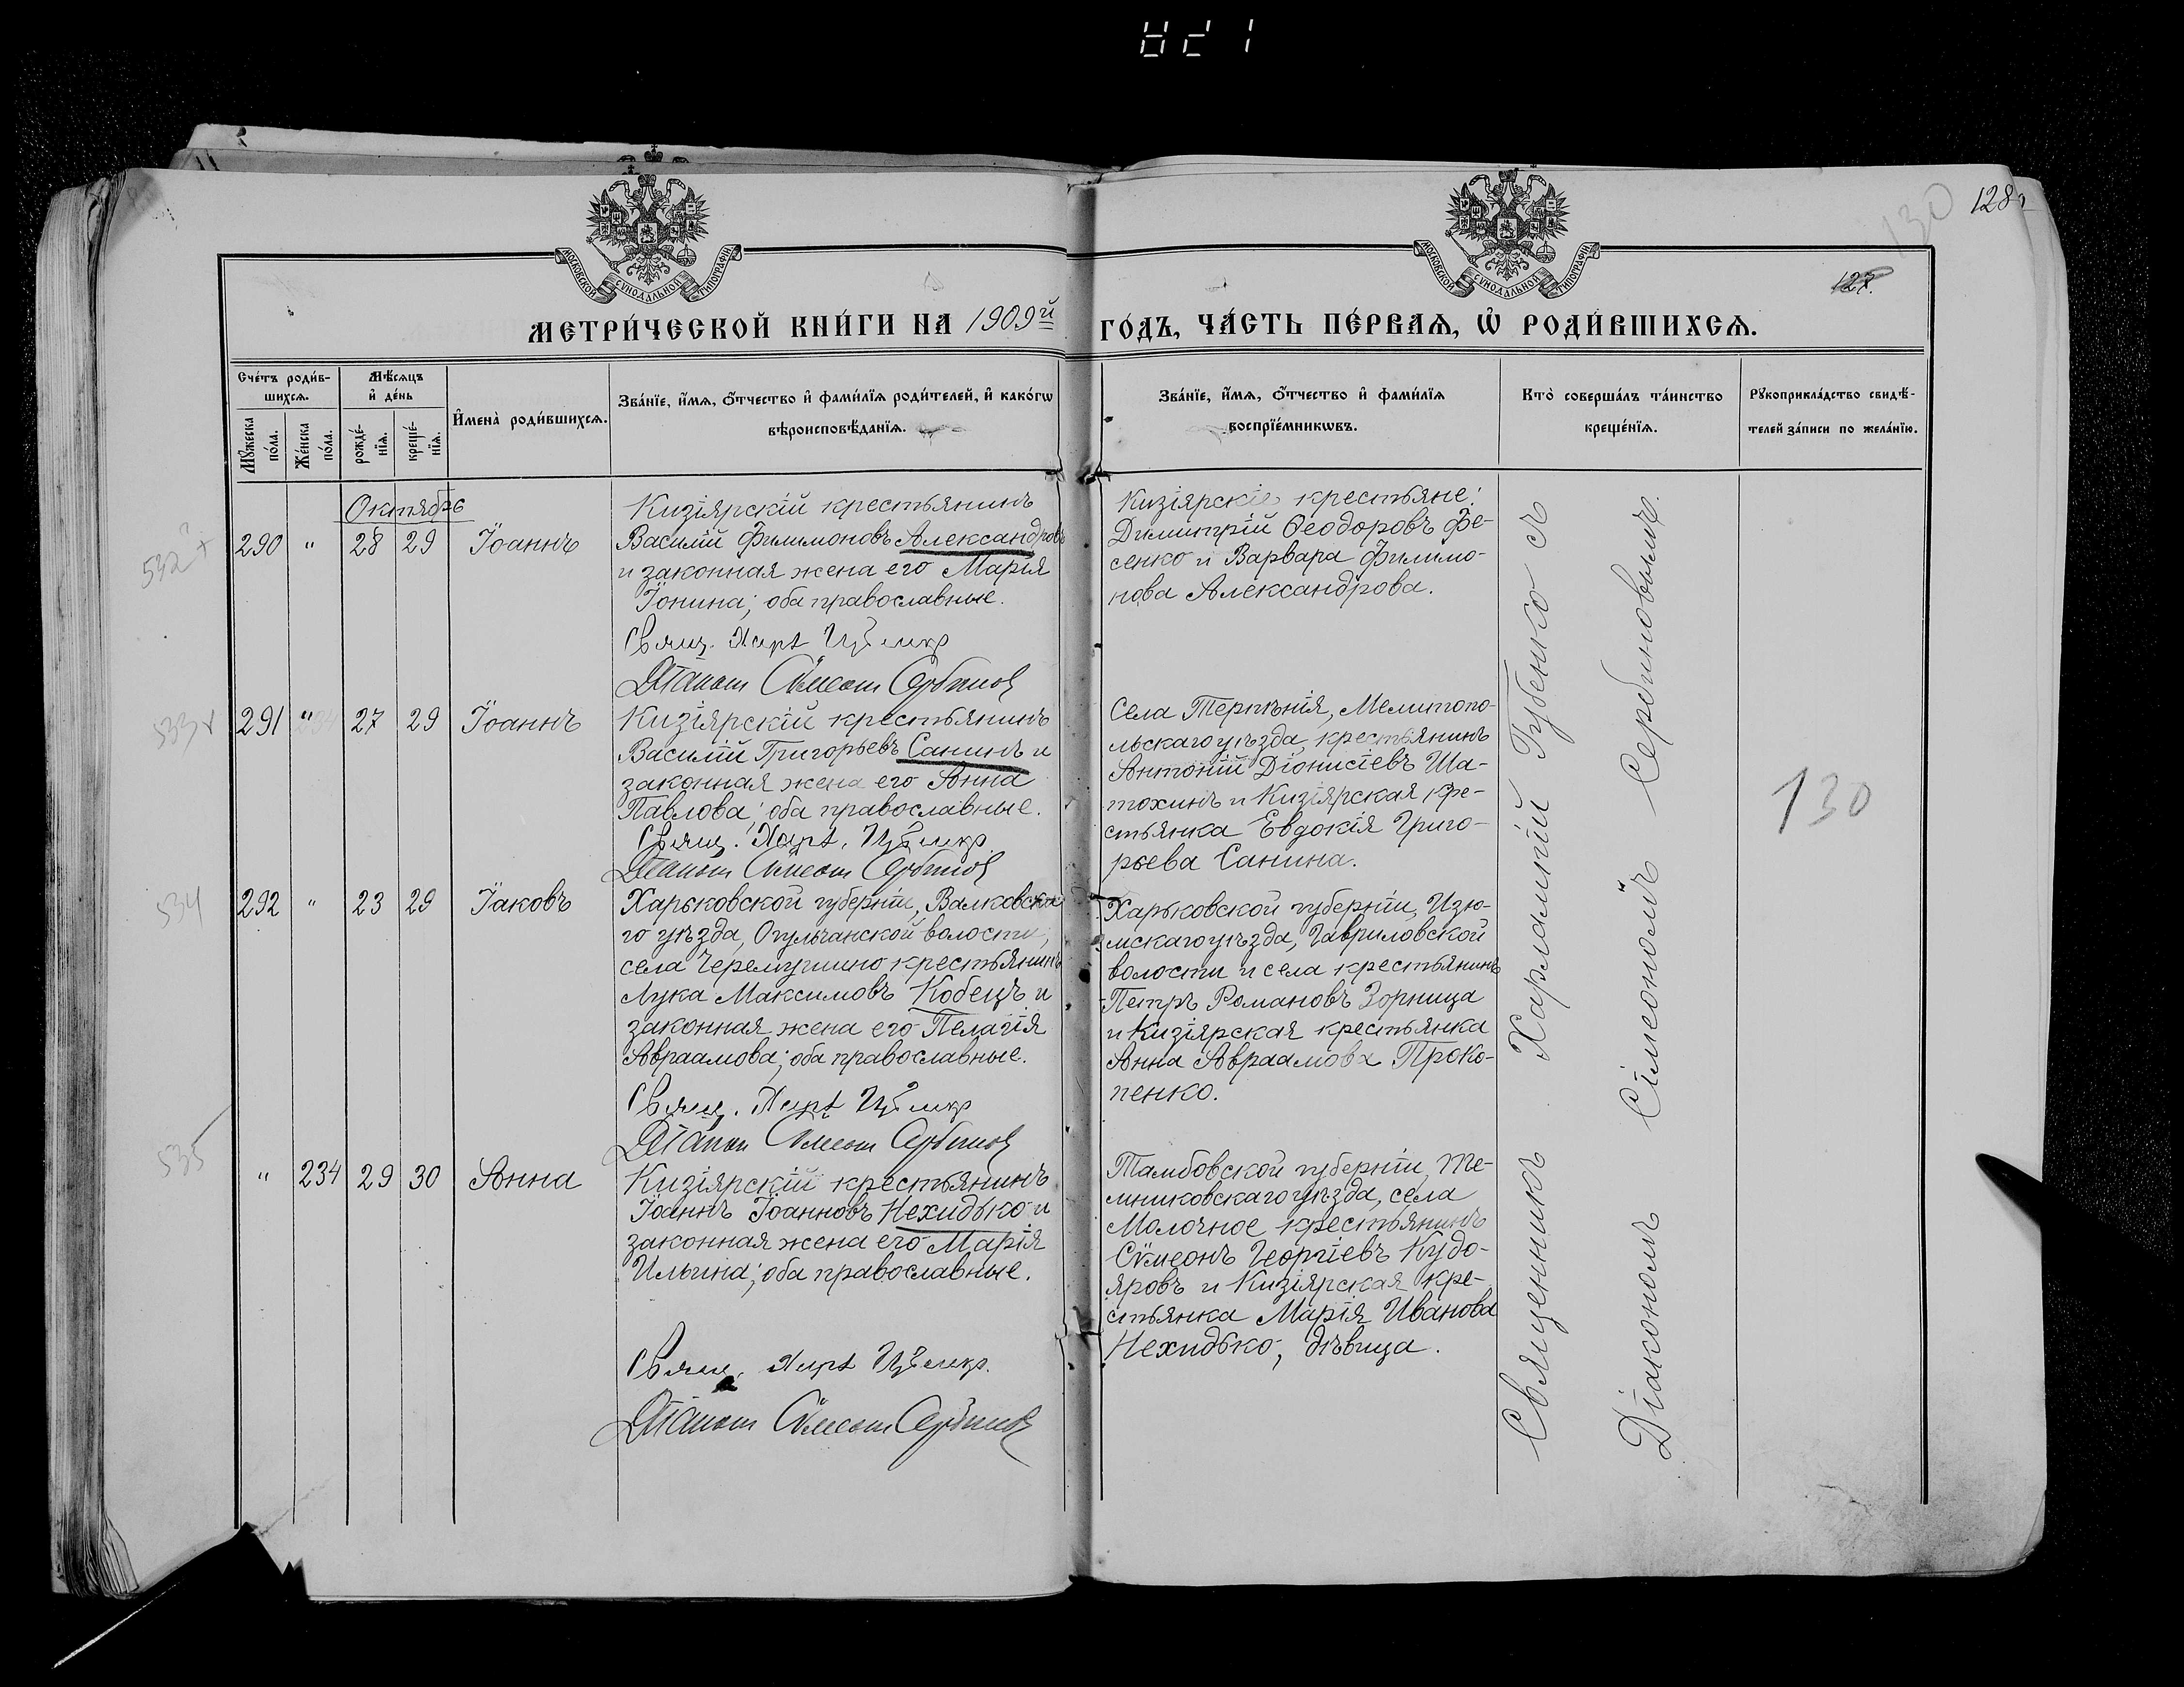 130
128
127.
МОСКОВСКОЙ СУНОДАЛЬНОЙ ТИПОГРАФІИ
МОСКОВСКОЙ СУНОДАЛЬНОЙ ТИПОГРАФІИ
МЕТРИ́ЧЕСКОЙ КНИ́ГИ НА 1909й ГО́ДЪ, ЧА́СТЬ ПЕ́РВАѦ, Ѡ РОДИ́ВШИХСѦ.
Сче́тъ роди́в-
шихсѧ.
Мꙋжеска по́ла.
Же́нска по́ла.
Мѣ́сѧцъ
и де́нь
рожде́-
нїѧ.
креще́-
нїѧ.
Имена̀ роди́вшихсѧ.
Зва́нїе, и́мѧ, о́тчество и фами́лїѧ роди́телей, и како́гѡ
вѣроисповѣ́данїѧ.
Зва́нїе, и́мѧ, о́тчество и фами́лїѧ
воспрїе́мникѡвъ.
Кто̀ соверша́лъ та́инство
креще́нїѧ.
Рꙋкоприкла́дство свидѣ́-
телей за́писи по жела́нїю.
Октябрь
532
290 " 28 29 Іоаннъ
Кизіярскій крестьянинъ
Василій Филимоновъ Александровъ
и законная жена его Марія
Іонина; оба православные.
Свящ. Харл. Губенко
Діаконъ Сѵмеонъ Сербиновъ
Кизіярскіе крестьяне:
Димитрій Ѳеодоровъ Фе-
сенко и Варвара Филимо-
нова Александрова.
533
291 " 27 29 Іоаннъ
Кизіярскій крестьянинъ
Василій Григорьевъ Санинъ и
законная жена его Анна
Павлова; оба православные.
Свящ. Харл. Губенко
Діаконъ Сѵмеонъ Сербиновъ
Села Терпѣнія, Мелитопо-
льскаго уѣзда, крестьянинъ
Антоній Діонисіевъ Ша-
тохинъ и Кизіярская кре-
стьянка Евдокія Григо-
рьева Санина.
534
292 " 23 29 Іаковъ
Харьковской губерніи, Валковска-
го уѣзда, Огульчанской волости,
села Черемушино крестьянинъ
Лука Максимовъ Кобецъ и
законная жена его Пелагія
Авраамова; оба православные.
Свящ. Харл. Губенко
Діаконъ Сѵмеонъ Сербиновъ
Харьковской губерніи, Изю-
мскаго уѣзда, Гавриловской
волости и села крестьянинъ
Петръ Романовъ Зорница
и Кизіярская крестьянка
Анна Авраамова Проко-
пенко.
535
" 234 29 30 Анна
Кизіярскій крестьянинъ
Іоаннъ Іоанновъ Нехидько и
законная жена его Марія
Ильина; оба православные.
Свящ. Харл. Губенко
Діаконъ Сѵмеонъ Сербиновъ
Тамбовской губерніи, Те-
мниковскаго уѣзда, села
Молочное крестьянинъ
Сѵмеонъ Георгіевъ Кудо-
яровъ и Кизіярская кре-
стьянка Марія Иванова
Нехидько, дѣвица.
Священникъ Харлампій Губенко съ
Діакономъ Сѵмеономъ Сербиновымъ.
130